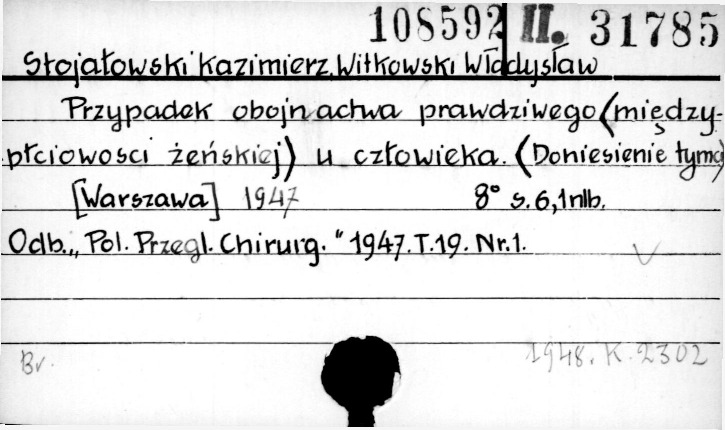 108592 II. 31785
Stojałowski Kazimierz, Witkowski Władysław
Przypadek obojnactwa prawdziwego (między-
płciowosci żeńskiej) u człowieka. (Doniesienie tymcz)
[Warszawa] 1947 8° s. 6, 1 nlb.
Odb. „Pol. Przegl. Chirurg." 1947. T. 19. Nr. 1.
Br. 1948. K. 2302